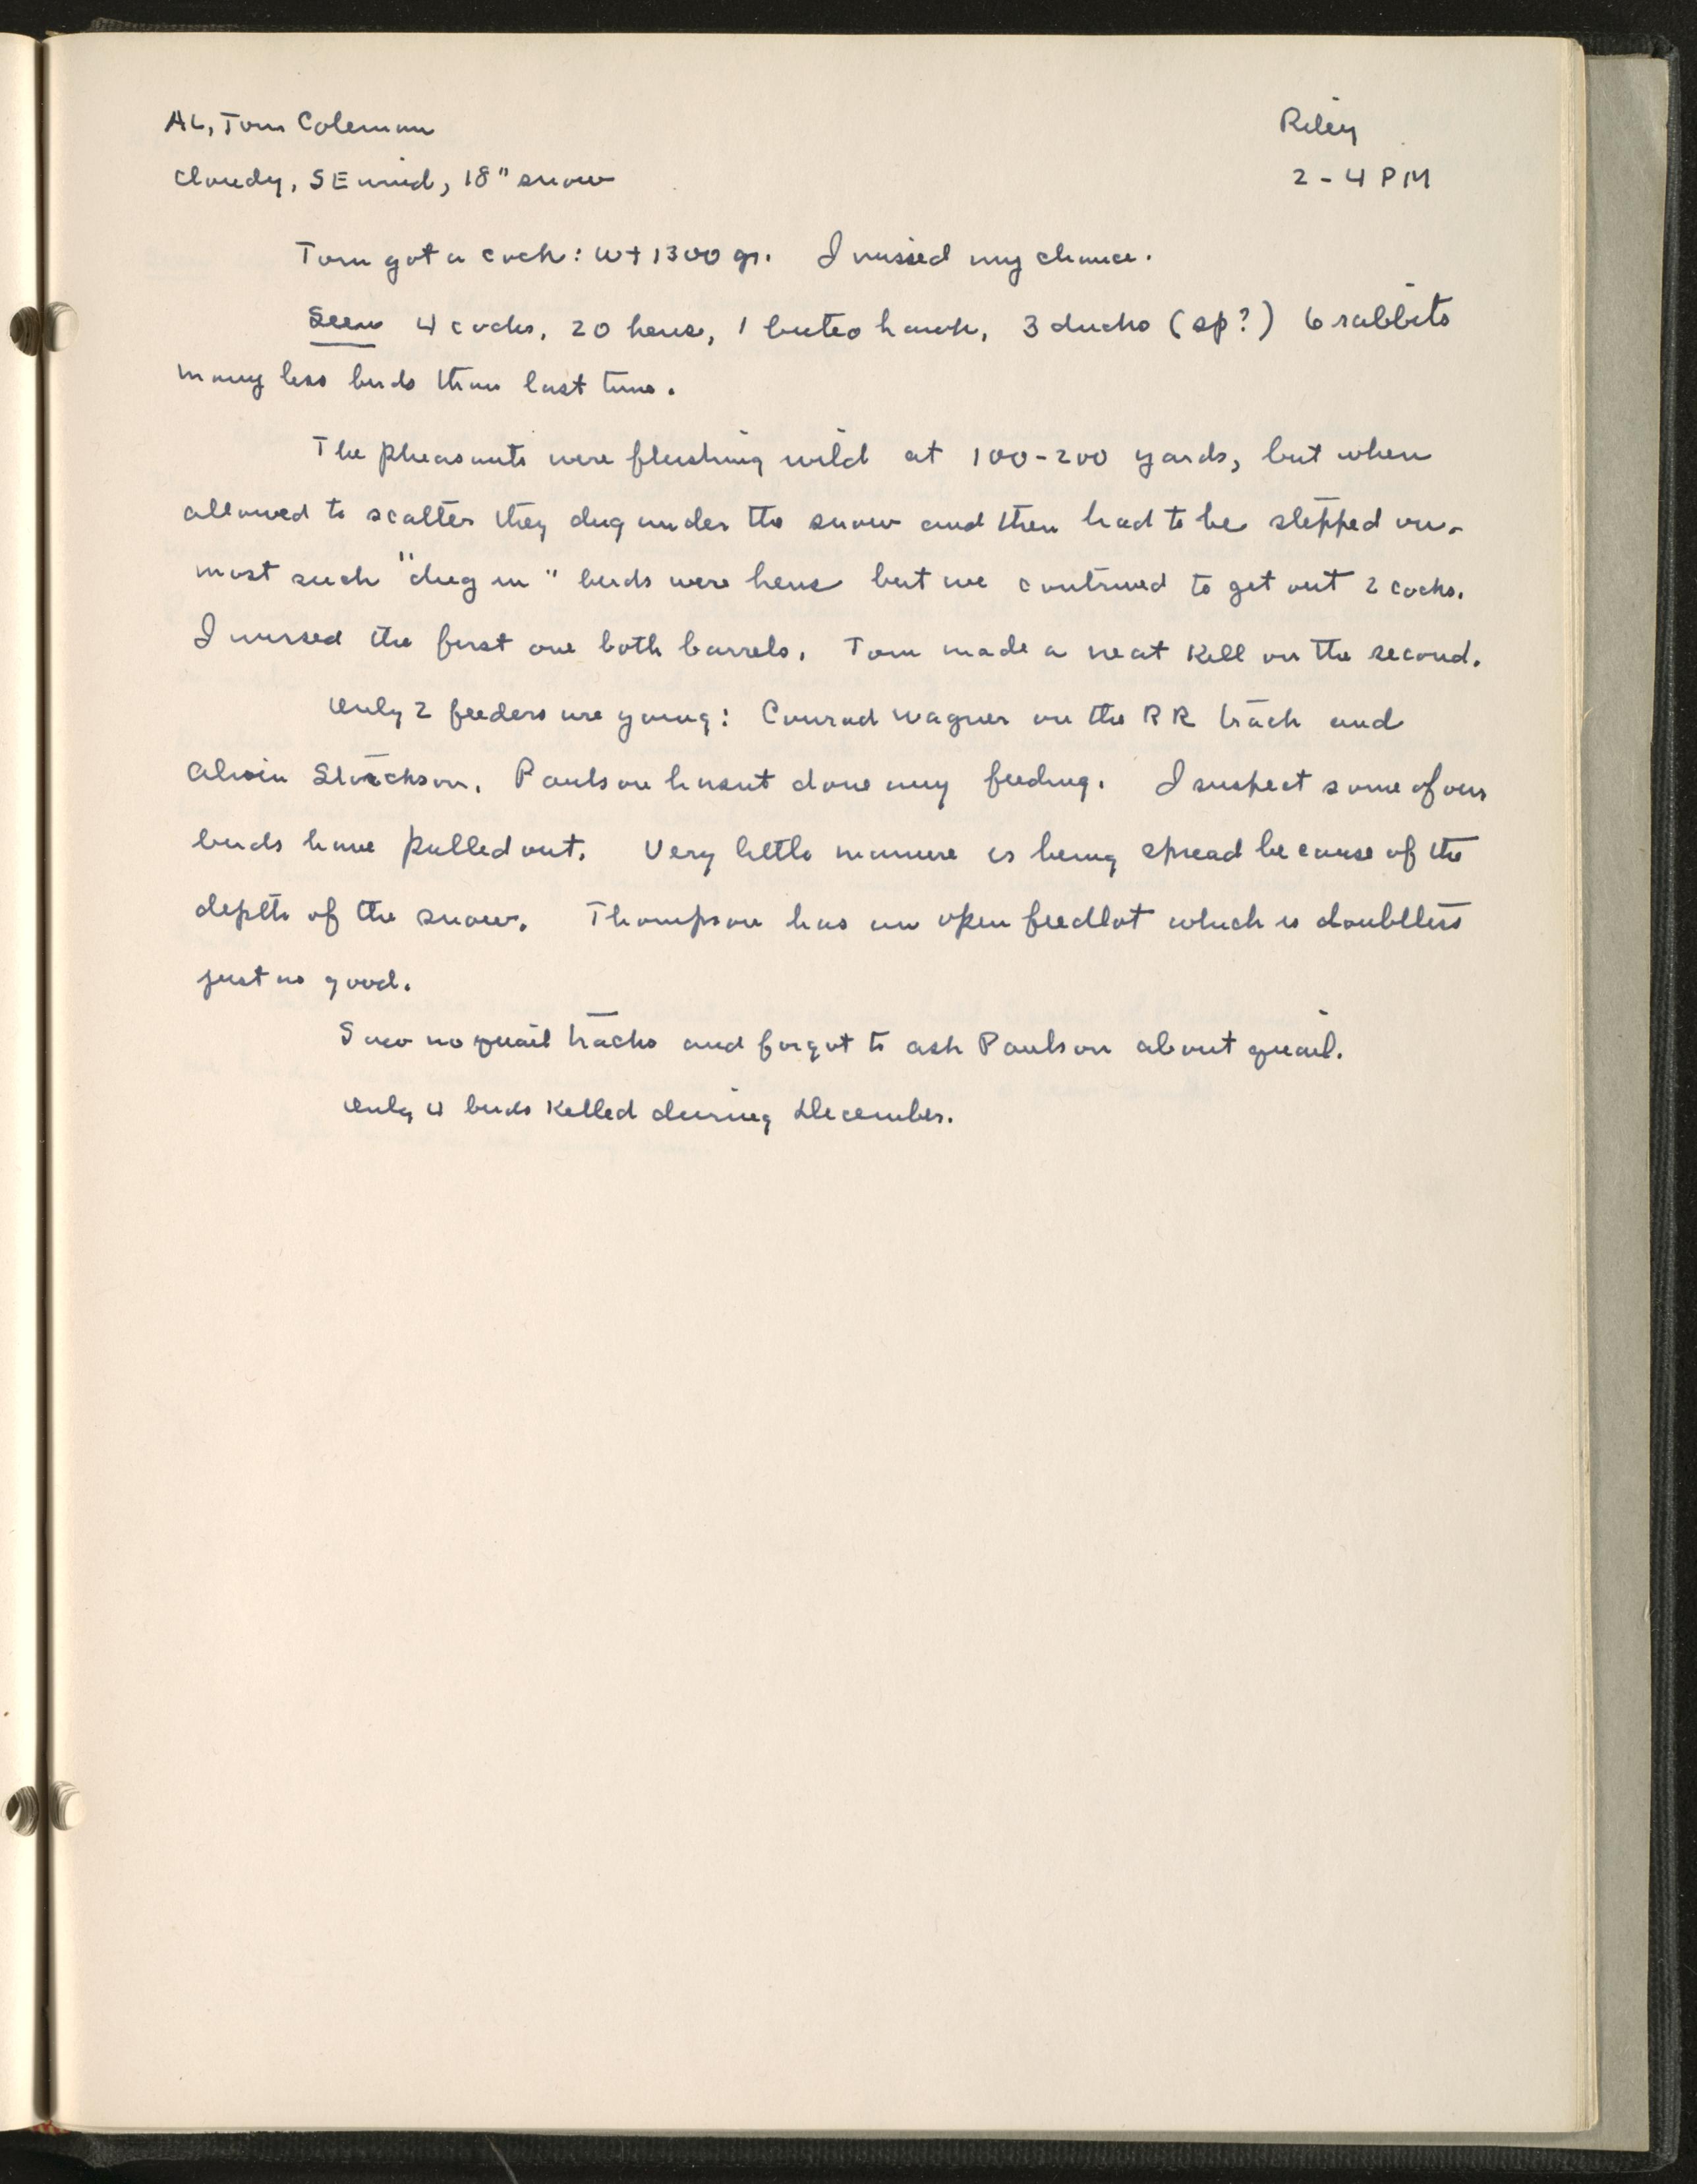 AL, Tom Coleman
Riley
Cloudy, SE wind, 18" snow
2 - 4 PM
Tom got a cock: wt 1300 gr. I missed my chance.
Seen 4 cocks, 20 hens, 1 buteo hawk, 3 ducks (sp?) 6 rabbits
Many less birds than last time.
The pheasants were flushing wild at 100-200 yards, but when
allowed to scatter they dug under the snow and then had to be stepped on.
Most such "dug in" birds were hens but we contrived to get out 2 cocks.
I missed the first one both barrels. Tom made a neat kill on the second.
Only 2 feeders are going: Conrad Wagner on the RR track and
Alvin. Paulson hasnt done any feeding. I suspect some of our
birds have pulled out. Very little manure is being spread because of the
depth of the snow. Thompson has an open feedlot which is doubtless
just as good.
Saw no quail tracks and forgot to ask Paulson about quail.
Only 4 birds killed during December.